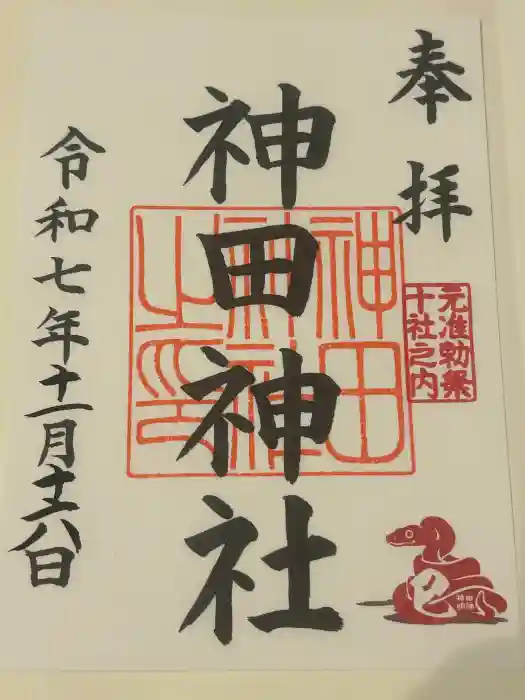 奉拝
元准勅祭
十社之内
神田神社
神田
神社
之印
令和七年十一月十六八日